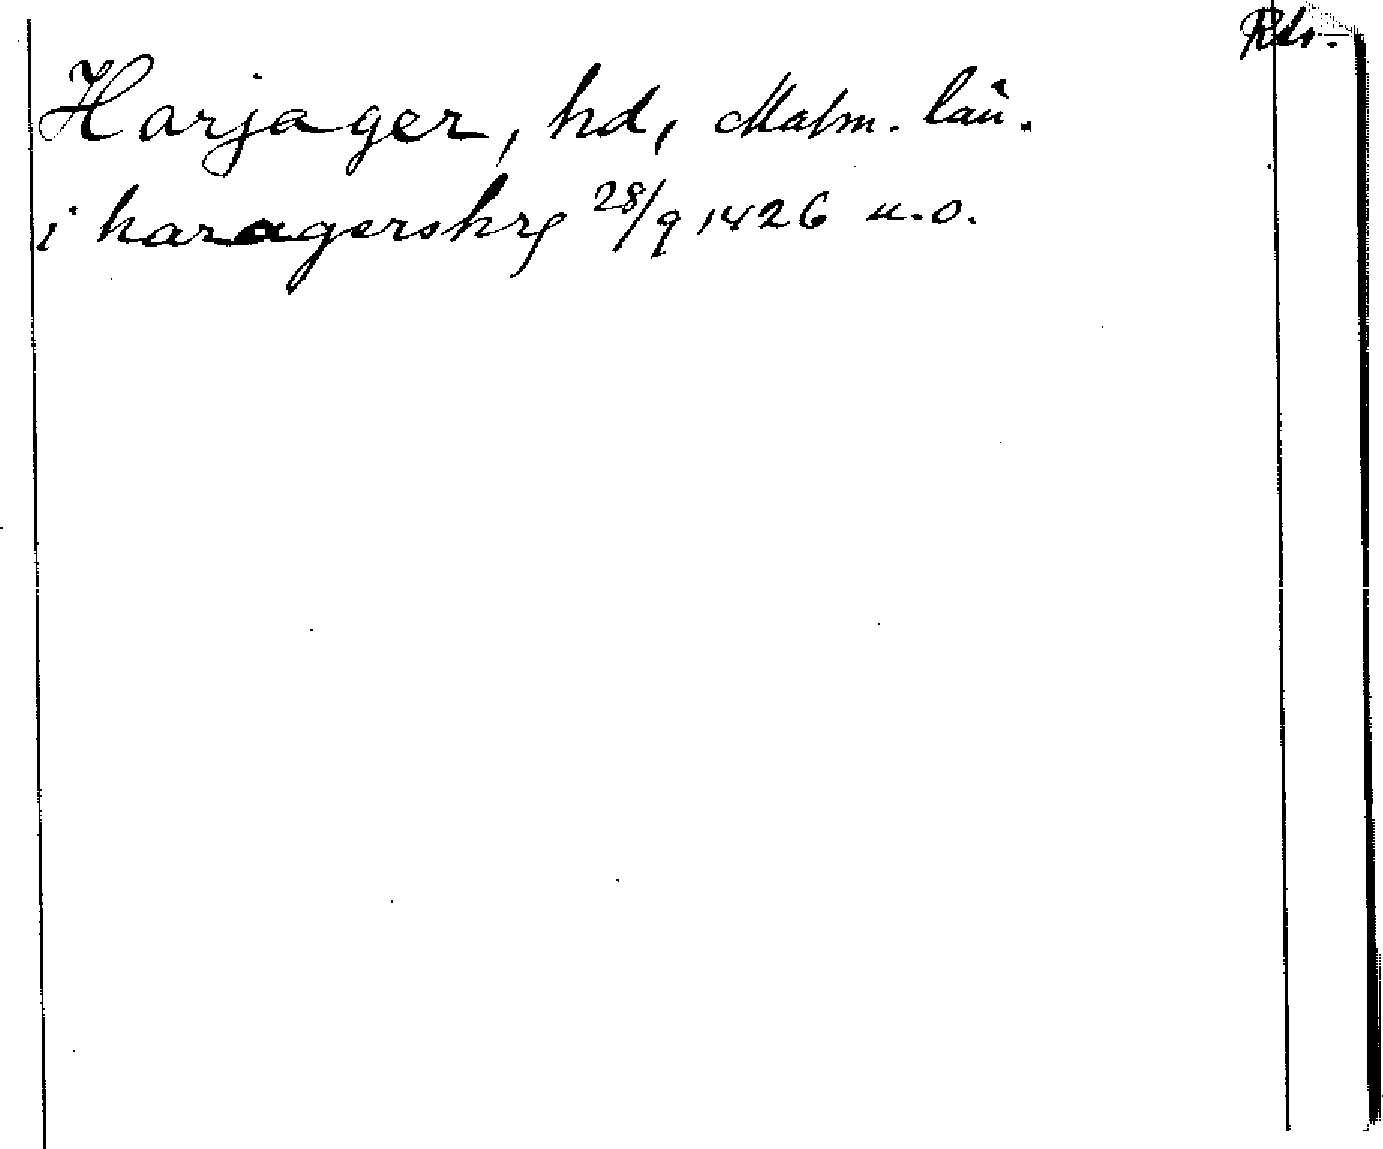 Rds.
Harjager, hd, Malm. län.
i haragershrϟ 28/9 1426 u.o.